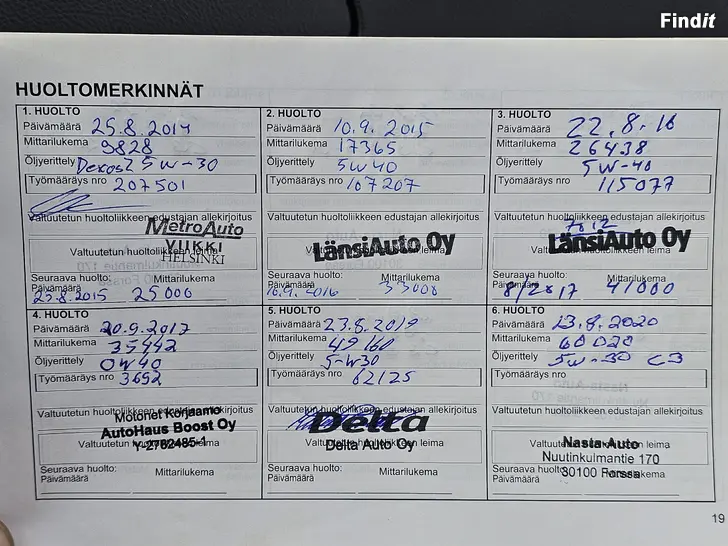 Findit
HUOLTOMERKINNÄT
1. HUOLTO
Päivämäärä 25.8.2014
Mittarilukema 9828
Öljyerittely Dexos2 5W-30
Työmääräys nro 207501
Valtuutetun huoltoliikkeen edustajan allekirjoitus
MetroAuto
Valtuutetun huoltoliikkeen leima
YLIKKI
HELSINKI
Seuraava huolto: Mittarilukema
Päivämäärä
25.8.2015 25000
2. HUOLTO
Päivämäärä 10.9.2015
Mittarilukema 17365
Öljyerittely 5W40
Työmääräys nro 107207
Valtuutetun huoltoliikkeen edustajan allekirjoitus
LänsiAuto Oy
Valtuutetun huoltoliikkeen leima
Seuraava huolto: Mittarilukema
Päivämäärä
10.9.2016 33000
3. HUOLTO
Päivämäärä 22.8.16
Mittarilukema 26438
Öljyerittely 5W-40
Työmääräys nro 115077
Valtuutetun huoltoliikkeen edustajan allekirjoitus
7012
LänsiAuto Oy
Valtuutetun huoltoliikkeen leima
Seuraava huolto: Mittarilukema
Päivämäärä
8/2017 41000
4. HUOLTO
Päivämäärä 20.9.2017
Mittarilukema 35442
Öljyerittely 0W40
Työmääräys nro 3692
Valtuutetun huoltoliikkeen edustajan allekirjoitus
Motonet Korjaamo
AutoHaus Boost Oy
Valtuutetun huoltoliikkeen leima
Y-2782485-1
Seuraava huolto: Mittarilukema
Päivämäärä
5. HUOLTO
Päivämäärä 23.8.2019
Mittarilukema 49160
Öljyerittely 5-W30
Työmääräys nro 62125
Valtuutetun huoltoliikkeen edustajan allekirjoitus
Delta
Valtuutetun huoltoliikkeen leima
Delta Auto Oy
Seuraava huolto: Mittarilukema
Päivämäärä
6. HUOLTO
Päivämäärä 13.8.2020
Mittarilukema 60020
Öljyerittely 5W-30 C3
Työmääräys nro
Valtuutetun huoltoliikkeen edustajan allekirjoitus
Valtuutetun huoltoliikkeen leima
Nasta-Auto
Nuutinkulmantie 170
30100 Forssa
Seuraava huolto: Mittarilukema
Päivämäärä
19